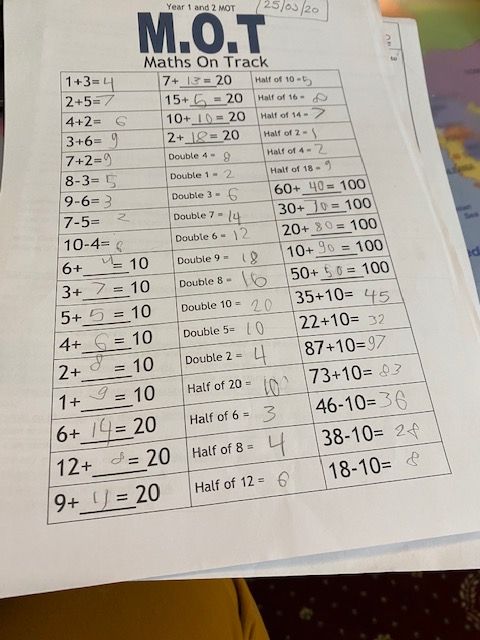 Year 1 and 2 MOT
25/03/20
M.O.T
Maths On Track
1+3= 4 7+ 13 = 20 Half of 10 = 5
2+5= 7 15+ 5 = 20 Half of 16 = 8
4+2= 6 10+ 10 = 20 Half of 14 = 7
3+6= 9 2+ 18 = 20 Half of 2 = 1
7+2= 9 Double 4 = 8 Half of 4 = 2
8-3= 5 Double 1 = 2 Half of 18 = 9
9-6= 3 Double 3 = 6 60+ 40 = 100
7-5= 2 Double 7 = 14 30+ 70 = 100
10-4= Double 6 = 12 20+ 80 = 100
6+ 4 = 10 Double 9 = 18 10+ 90 = 100
3+ 7 = 10 Double 8 = 16 50+ 50 = 100
5+ 5 = 10 Double 10 = 20 35+10= 45
4+ 6 = 10 Double 5= 10 22+10= 32
2+ 8 = 10 Double 2 = 4 87+10= 97
1+ 9 = 10 Half of 20 = 10 73+10= 83
6+ 14 = 20 Half of 6 = 3 46-10= 36
12+ 8 = 20 Half of 8 = 4 38-10= 28
9+ 11 = 20 Half of 12 = 6 18-10= 8